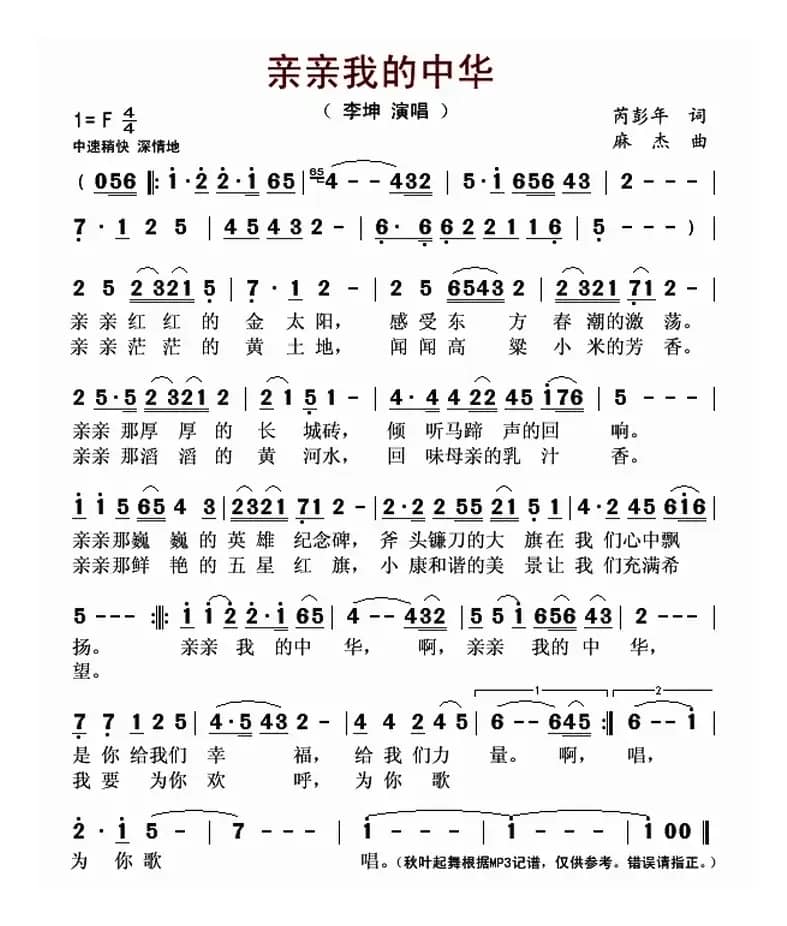 亲亲我的中华
（ 李坤 演唱 ）
1= F 4/4
芮彭年 词
中速稍快 深情地
麻 杰 曲
( 056 ‖: 1·2 2·1 65 | 65 4 - - 432 | 5·1 656 43 | 2 - - - |
7 · 1 2 5 | 45 432 - | 6· 6 62 21 16 | 5 - - - ) |
2 5 2 321 5 | 7 · 1 2 - | 2 5 6543 2 | 2 321 71 2 - |
亲 亲 红 红 的 金 太 阳， 感 受 东 方 春 潮的激 荡。
亲 亲 茫 茫 的 黄 土 地， 闻 闻 高 粱 小 米的芳 香。
2 5·5 2 321 2 | 2 1 5 2 - | 4· 4 4 22 45 176 | 5 - - - |
亲亲 那厚 厚 的 长 城砖， 倾 听马蹄 声的回 响。
亲亲 那滔 滔 的 黄 河水， 回 味母亲的乳 汁 香。
1 1 5 65 4 3 | 2321 71 2 - | 2·2 2 55 21 5 1 | 4·2 45 616 |
亲亲那巍 巍 的 英 雄 纪念碑， 斧 头镰刀的大 旗在 我 们心中飘
亲亲那鲜 艳 的 五 星 红 旗， 小 康和谐的美 景让 我 们充满希
5 - - - :‖: 1 12 2·1 65 | 4 - - 432 | 5 51 656 43 | 2 - - - |
扬。 亲亲 我 的中 华， 啊， 亲亲 我的 中 华，
望。
1 2
7 7 12 5 | 4·5 43 2 - | 4 4 2 45 | 6 - - 645 :‖ 6 - - 1 |
是 你 给我们 幸 福， 给 我 们力 量。 啊， 唱，
我 要 为你 欢 呼， 为 你 歌
2 · 1 5 - | 7 - - - | 1 - - - | 1 - - - | 1 00 ‖
为 你歌 唱。（秋叶起舞根据MP3记谱，仅供参考。错误请指正。）